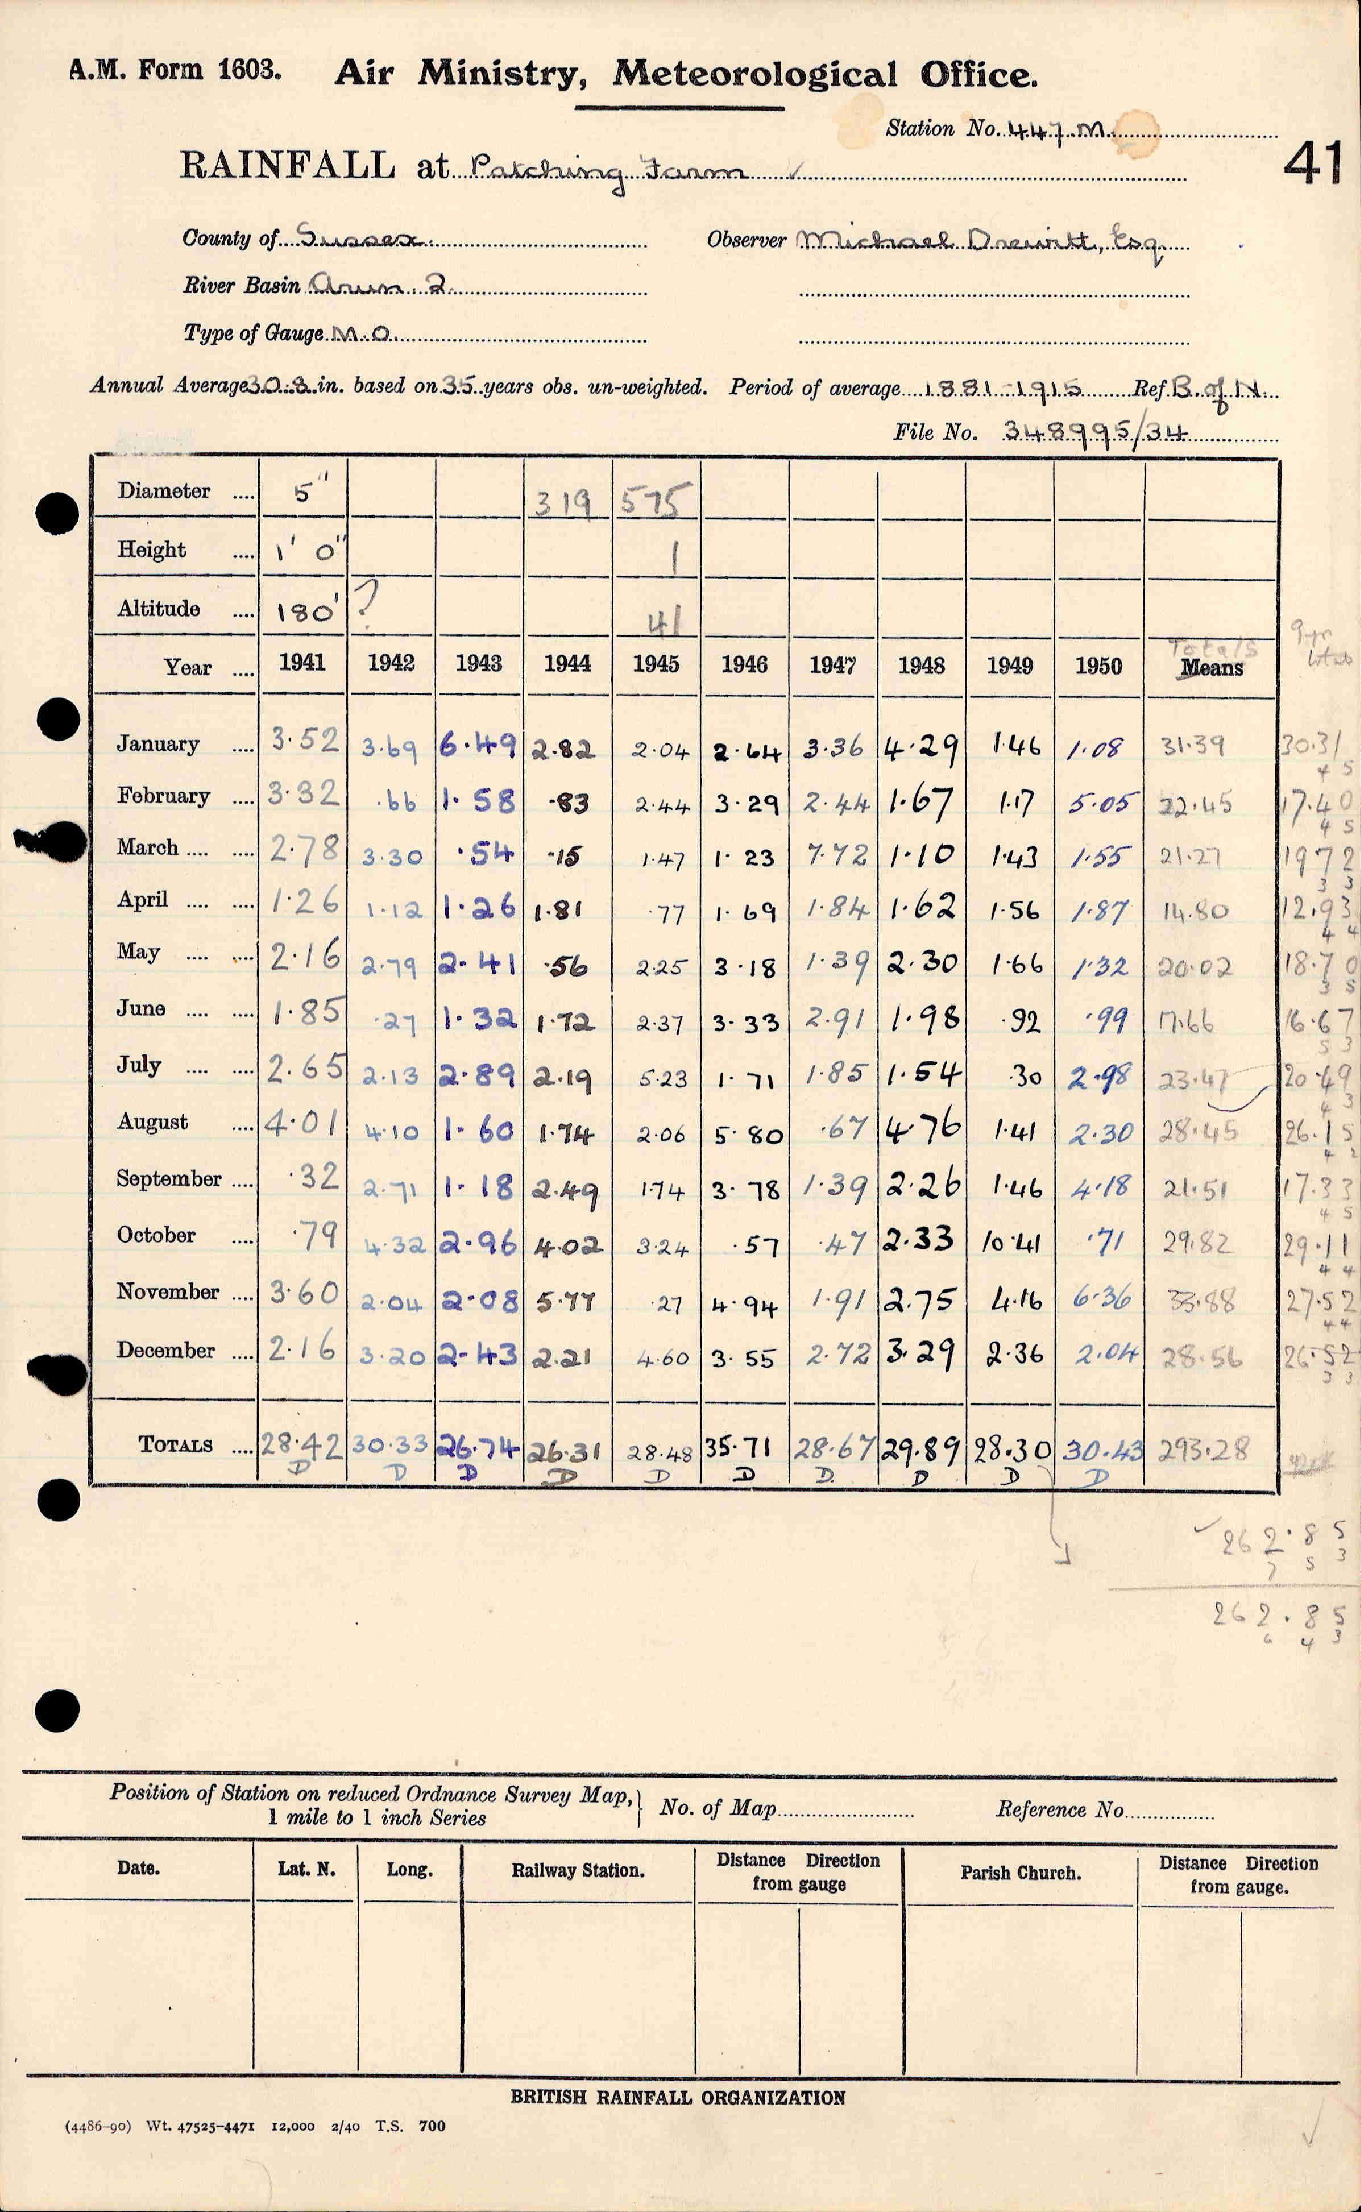 A.M. Form 1603. Air Ministry, Meteorological Office.
Station No. 447.M.
41
RAINFALL at Patching Farm ✓
County of Sussex. Observer Michael Drewitt, Esq.
River Basin Arun. 2.
Type of Gauge M.O.
Annual Average 30.8 in. based on 35 years obs. un-weighted. Period of average 1881-1915 Ref B. of N.
File No. 348995/34
Diameter .... 5" 319 575
Height .... 1' 0" 1
Altitude .... 180' ? 41
9 yr
Totals
Year .... 1941 1942 1943 1944 1945 1946 1947 1948 1949 1950 Means
January .... 3.52 3.69 6.49 2.82 2.04 2.64 3.36 4.29 1.46 1.08 31.39 30.31
4 5
February .... 3.32 .66 1.58 .83 2.44 3.29 2.44 1.67 1.17 5.05 22.45 17.40
4 5
March .... .... 2.78 3.30 .54 .15 1.47 1.23 7.72 1.10 1.43 1.55 21.27 19 72
3 3
April .... .... 1.26 1.12 1.26 1.81 .77 1.69 1.84 1.62 1.56 1.87 14.80 12.93
4 4
May .... .... 2.16 2.79 2.41 .56 2.25 3.18 1.39 2.30 1.66 1.32 20.02 18.70
3 5
June .... .... 1.85 .27 1.32 1.72 2.37 3.33 2.91 1.98 .92 .99 17.66 16.67
5 3
July .... .... 2.65 2.13 2.89 2.19 5.23 1.71 1.85 1.54 .30 2.98 23.47 20.49
4 3
August .... 4.01 4.10 1.60 1.74 2.06 5.80 .67 4.76 1.41 2.30 28.45 26.15
4 2
September .... .32 2.71 1.18 2.49 1.74 3.78 1.39 2.26 1.46 4.18 21.51 17.33
4 5
October .... .79 4.32 2.96 4.02 3.24 .57 .47 2.33 10.41 .71 29.82 29.11
4 4
November .... 3.60 2.04 2.08 5.77 .27 4.94 1.91 2.75 4.16 6.36 33.88 27.52
4 4
December .... 2.16 3.20 2.43 2.21 4.60 3.55 2.72 3.29 2.36 2.04 28.56 26.52
3 3
TOTALS .... 28.42 30.33 26.74 26.31 28.48 35.71 28.67 29.89 28.30 30.43 293.28
D D D D D D D. D D D
✓ 262.85
7 5 3
262.85
6 4 3
Position of Station on reduced Ordnance Survey Map,
1 mile to 1 inch Series
No. of Map Reference No.
Date. Lat. N. Long. Railway Station. Distance Direction from gauge Parish Church. Distance Direction from gauge.
BRITISH RAINFALL ORGANIZATION
(4486-90) Wt. 47525-4471 12,000 2/40 T.S. 700
✓